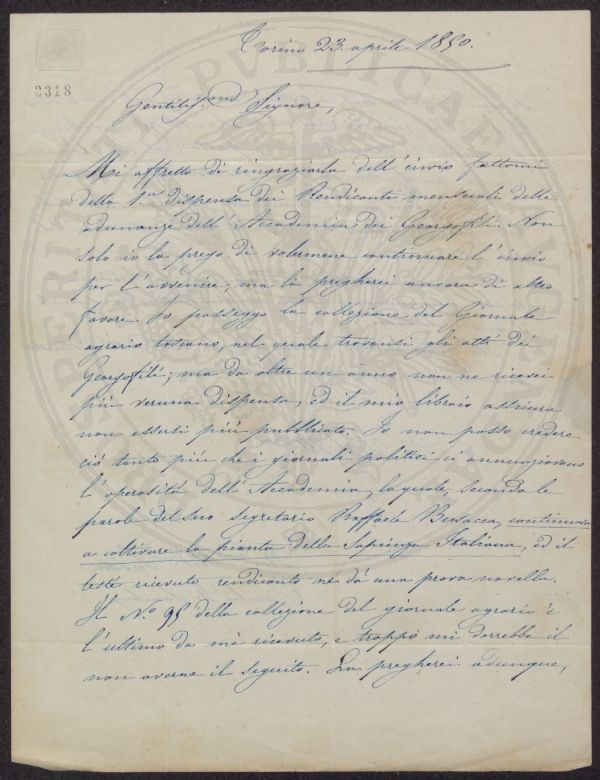 Torino 23 aprile 1850.
2318
Gentiliss.mo Signore,
Mi affretto di ringraziarla dell'invio fattomi
della 1.a Dispensa dei Rendiconti mensuali delle
adunanze dell'Accademia dei Georgofili. Non
solo io la prego di volermene continuare l'invio
per l'avvenire; ma la pregherei ancora di altro
favore. Io posseggo la collezione del Giornale
agrario toscano, nel quale trovansi gli atti dei
Georgofili; ma da oltre un anno non ne ricevei
più veruna dispensa, ed il mio libraio assicura
non essersi più pubblicato. Io non posso credere
ciò tanto più che i giornali politici ci annunziavano
l'operosità dell'Accademia, la quale, secondo le
parole del suo segretario Raffaele Busacca, continuava
a coltivare la pianta della Sapienza Italiana, ed il
testè ricevuto rendiconto ne dà una prova novella.
Il N.o 95 della collezione del giornale agrario è
l'ultimo da me ricevuto, e troppo mi dorrebbe il
non averne il seguito. La pregherei adunque,